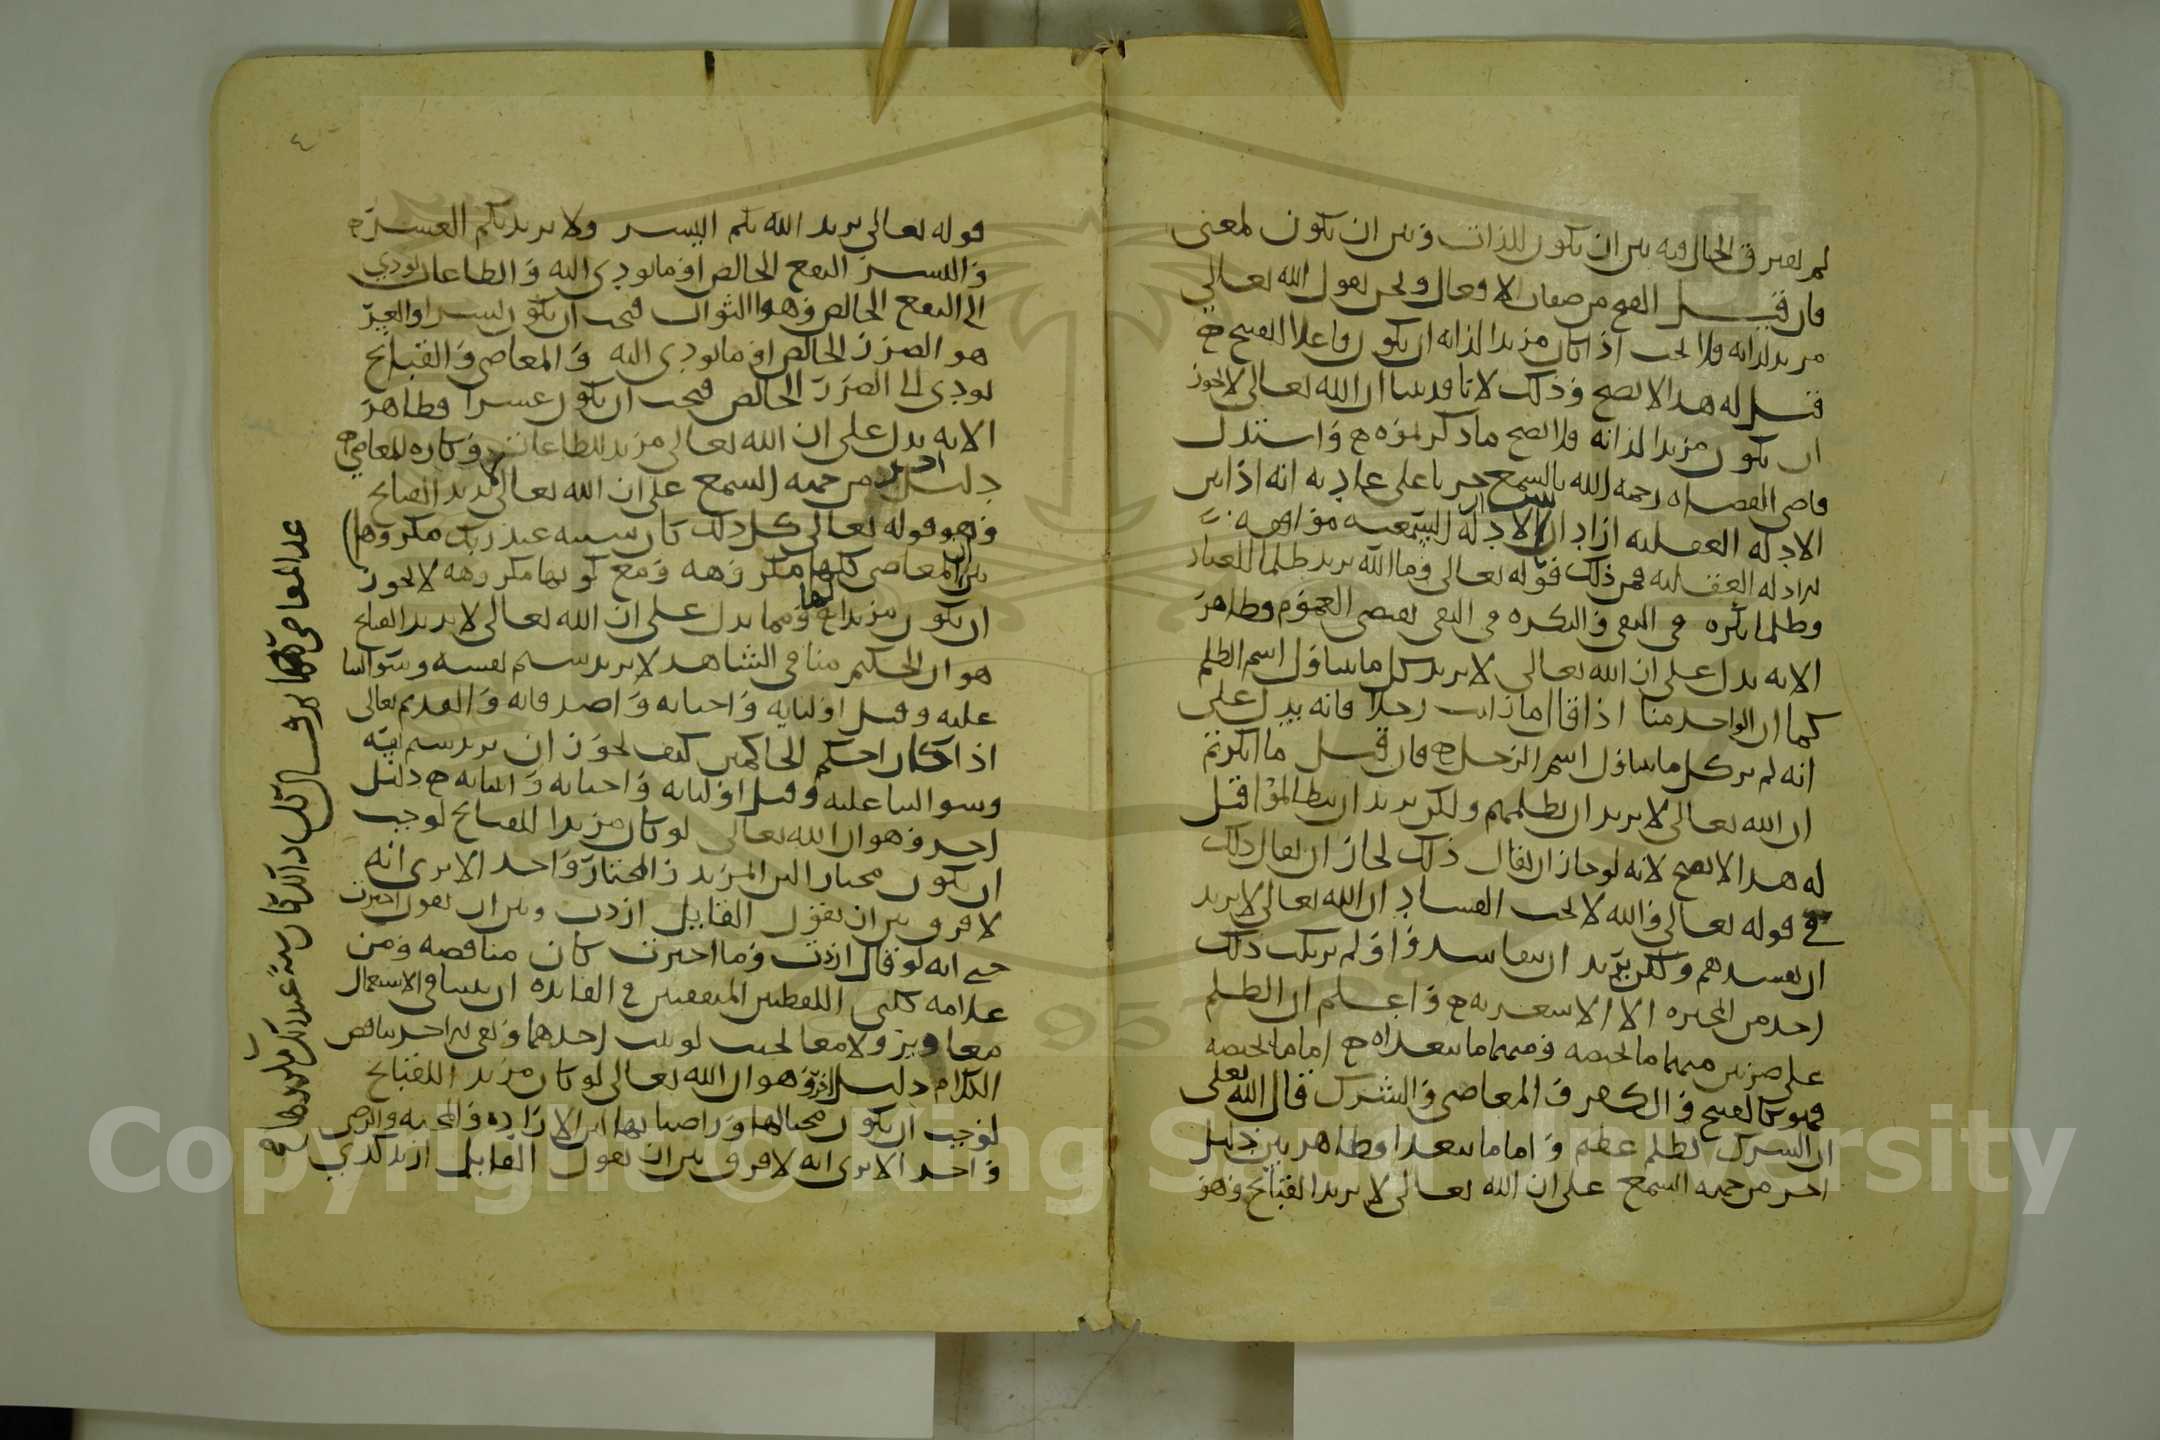 لم يفترق الحال فيه بين ان يكون للذات وبين ان يكون لمعنى
فان قيل القبح من صفات الافعال ونحن نقول الله تعالى
مريد لذاته فلا يجب اذا كان مريدا لذاته ان يكون فاعلا للقبيح
قيل له هذا لا يصح وذلك لانا قد بينا ان الله تعالى لا يجوز
ان يكون مريدا لذاته فلا يصح ما ذكرتموه واستدل
قاضي القضاه رحمه الله بالسمع جريا على عادته انه اذا بين
الادله العقليه اراد ان الادله السمعيه موافقه
لدلاله العقليه فمن ذلك قوله تعالى وما الله يريد ظلما للعباد
وظلما نكره في النفي والنكره في النفي تقتضي العموم وظاهر
الايه يدل على ان الله تعالى لا يريد كل ما يتناول اسم الظلم
كما ان الواحد منا اذا قال ما رايت رجلا فانه يدل على
انه لم ير كل ما يتناول اسم الرجل فان قيل ما انكرتم
ان الله تعالى لا يريد ان يظلمهم ولكن يريد ان يتظالموا قيل
له هذا لا يصح لانه لو جاز ان يقال ذلك لجاز ان يقال ذلك
في قوله تعالى والله لا يحب الفساد ان الله تعالى لا يريد
ان يفسدهم ولكن يريد ان يتفاسدوا ولم يرتكب ذلك
احد من المجبره الا الاشعريه واعلم ان الظلم
على ضربين منهما ما يخصه ومنهما ما يتعداه اما ما يخصه
فهو كالقبيح والكفر والمعاصي والشرك قال الله تعلى
ان الشرك لظلم عظيم واما ما يتعدا فظاهر بين دليل
اخر من جهه السمع على ان الله تعالى لا يريد القبائح وهو
٤
قوله تعالى يريد الله بكم اليسر ولا يريد بكم العسر
واليسر النفع الخالص او ما يودي اليه والطاعات تودي
الى النفع الخالص وهو الثواب فيجب ان يكون يسرا والعسر
هو الضرر الخالص او ما يودي اليه والمعاصي والقبائح
تودي الى الضرر الخالص فيجب ان يكون عسرا وظاهر
الايه يدل على ان الله تعالى مريد للطاعات وكاره للمعاصي
دليل اخر من جهه السمع على ان الله تعالى لا يريد القبائح
وهو قوله تعالى كل ذلك كان سيئه عند ربك مكروها
بين ان المعاصي كلها مكروهه ومع كونها مكروهه لا يجوز
ان يكون مريدا لها ومما يدل على ان الله تعالى لا يريد القبائح
هو ان الحكيم منا في الشاهد لا يريد شتم نفسه وسو الثنا
عليه وقتل اوليائه واحبائه واصدقائه والقديم تعالى
اذا كان احكم الحاكمين كيف يجوز ان يريد شتم نفسه
وسو الثنا عليه وقتل اوليائه واحبائه وانبيائه دليل
اخر وهو ان الله تعالى لو كان مريدا للقبائح لوجب
ان يكون مختارا لان المريد والمختار واحد الا ترى انه
لا فرق بين ان يقول القايل اردت وبين ان يقول اخترت
حتى انه لو قال اردت وما اخترت كان مناقضه ومن
علامه كلتي اللفظتين المتفقتين في الفايده ان يثبتا في الاستعمال
معا ويزولا معا بحيث لو يثبت احدهما ونفي الاخر يناقض
الكلام دليل اخر وهو ان الله تعالى لو كان مريدا للقبائح
لوجب ان يكون محبا لها وراضيا بها لان الاراده والمحبه والرضى
واحد الا ترى انه لا فرق بين ان يقول القايل اريد كذي
عد المعاصي كلها ثم قال كل ذلك كان سيئه عند ربك مكروها